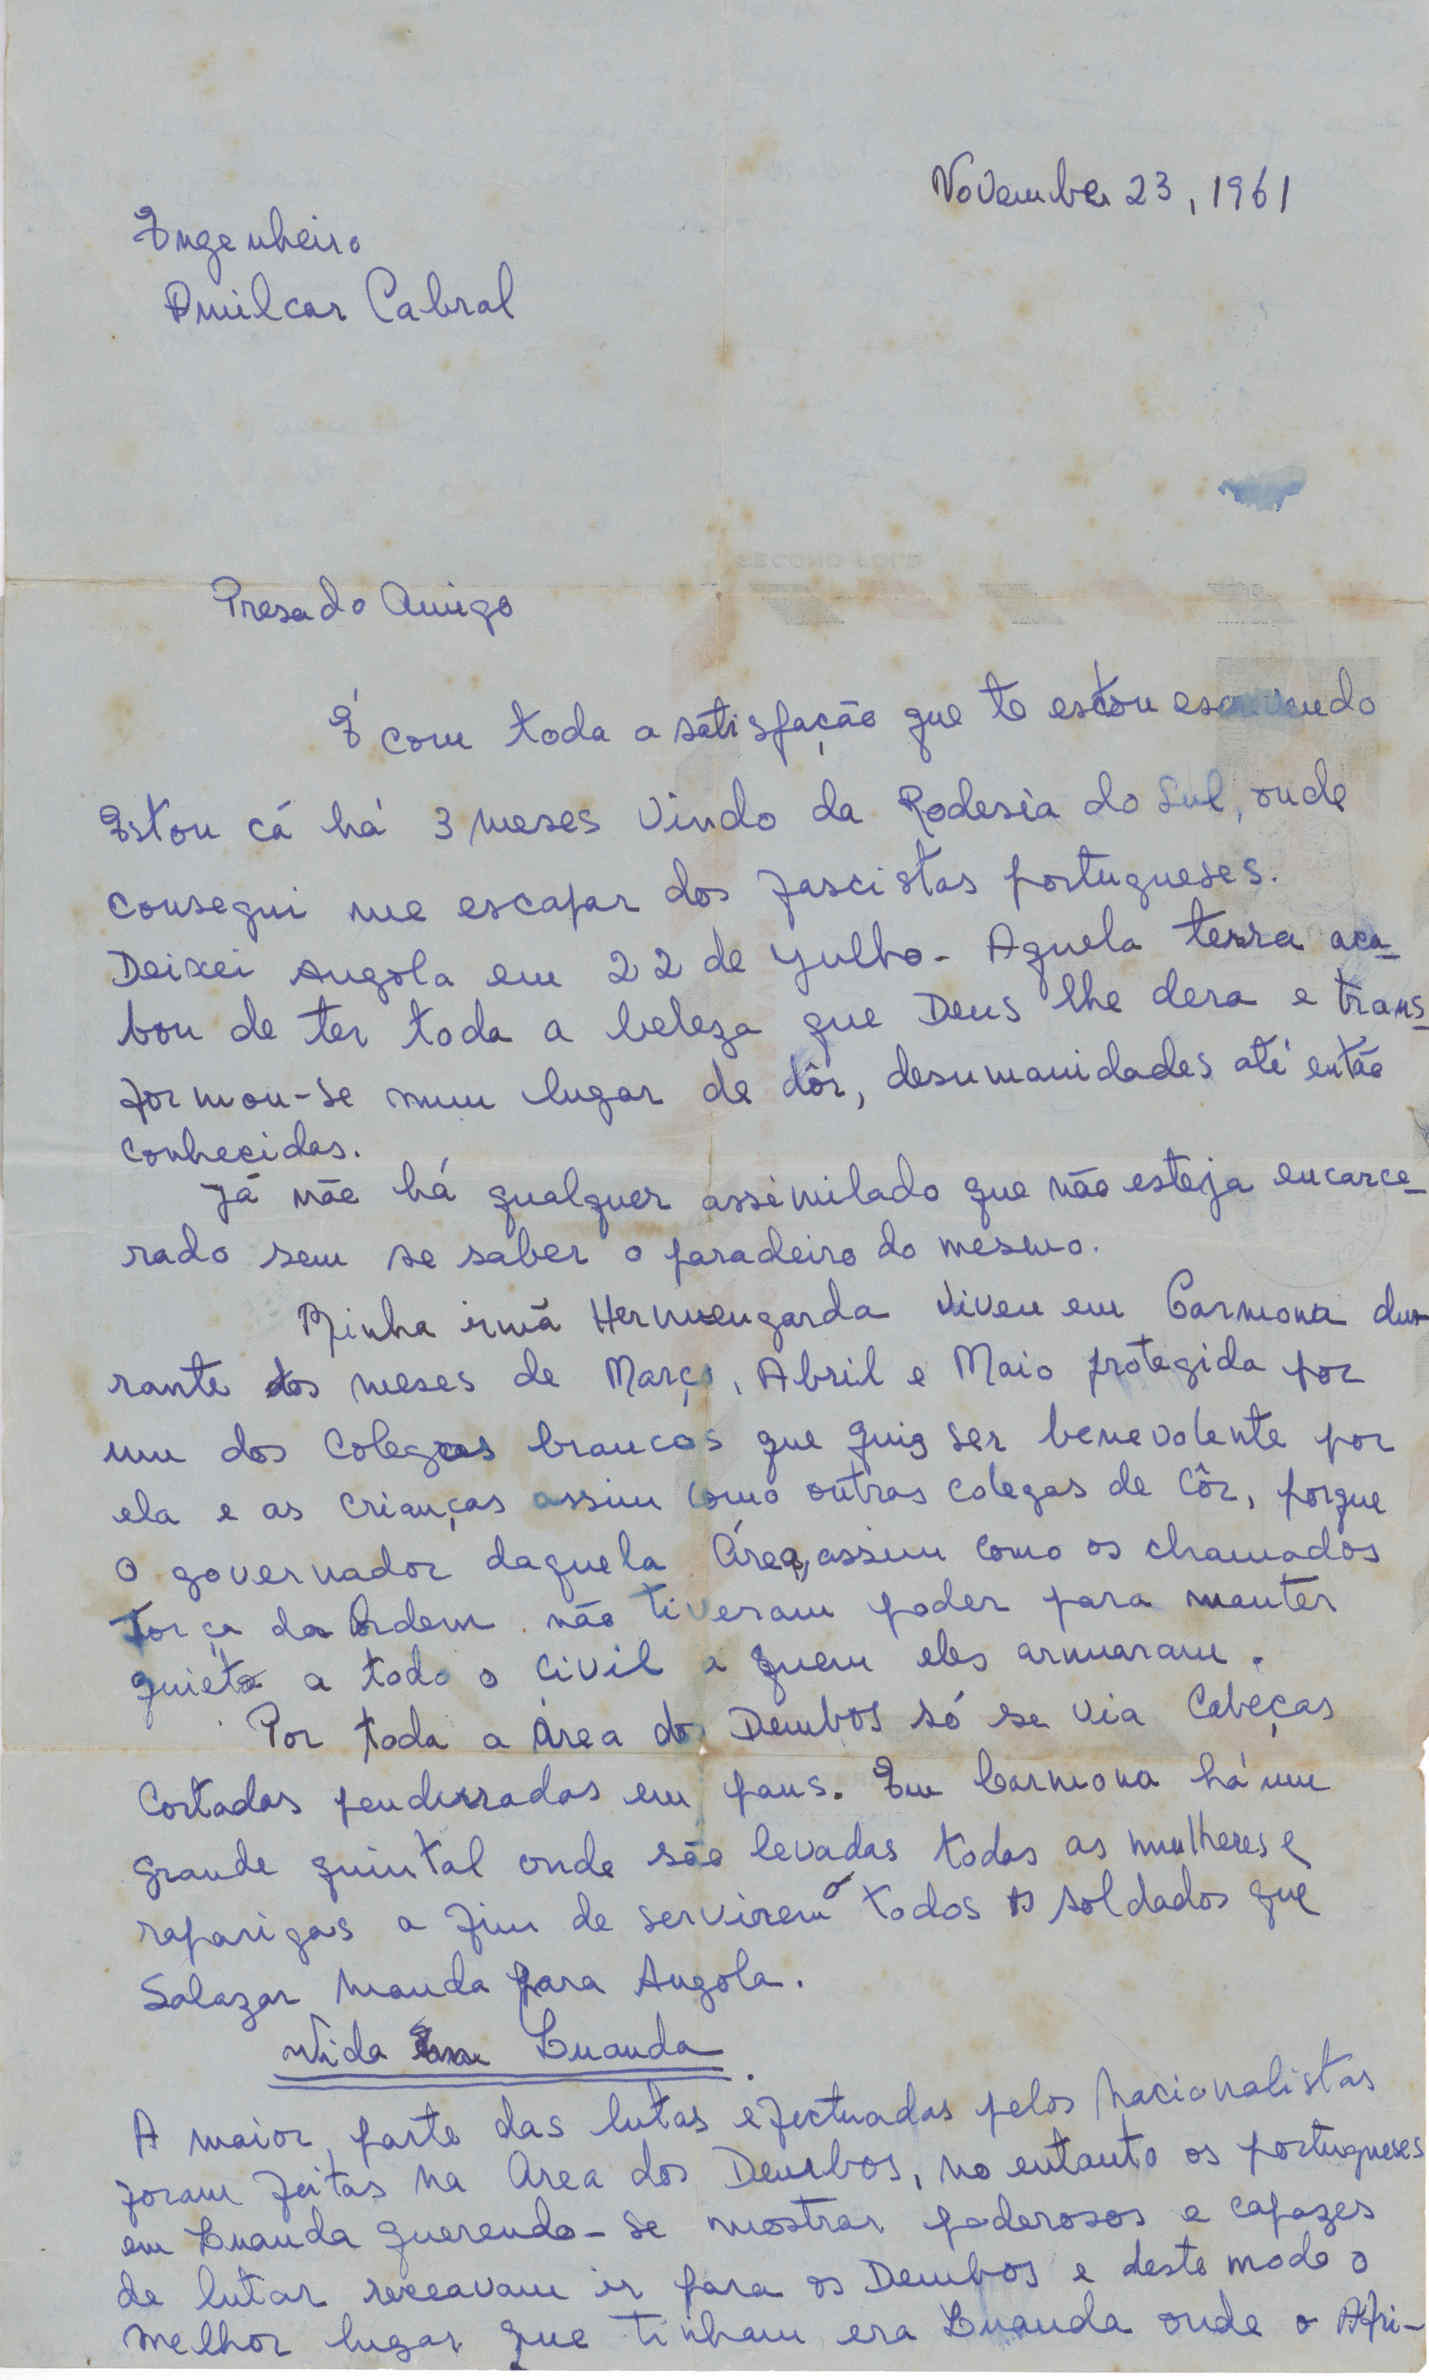 November 23, 1961
Engenheiro
Amilcar Cabral
Presado Amigo
É com toda a satisfação que te estou escrevendo
Estou cá há 3 meses vindo da Rodesia do Sul, onde
consegui me escapar dos fascistas portugueses.
Deixei Angola em 22 de Julho. Aquela terra aca-
bou de ter toda a beleza que Deus lhe dera e trans-
formou-se num lugar de dôr, desumanidades até então
conhecidas.
Já não há qualquer assimilado que não esteja encarce-
rado sem se saber o paradeiro do mesmo.
Minha irmã Hermengarda viveu em Carmona du-
rante os meses de Março, Abril e Maio protegida por
um dos colegas brancos que quis ser benevolente por
ela e as crianças assim como outras colegas de côr, porque
o governador daquela Área, assim como os chamados
Força da Ordem não tiveram poder para manter
quieto a todo o civil a quem eles armaram.
Por toda a Área dos Dembos só se via Cabeças
Cortadas penduradas em paus. Em Carmona há um
grande quintal onde são levadas todas as mulheres e
raparigas a fim de servirem a todos os soldados que
Salazar manda para Angola.
Vida em Luanda
A maior parte das lutas efectuadas pelos nacionalistas
foram feitas na Área dos Dembos, no entanto os portugueses
em Luanda querendo-se mostrar poderosos e capazes
de lutar receavam ir para os Dembos e deste modo o
melhor lugar que tinham era Luanda onde o Afri-